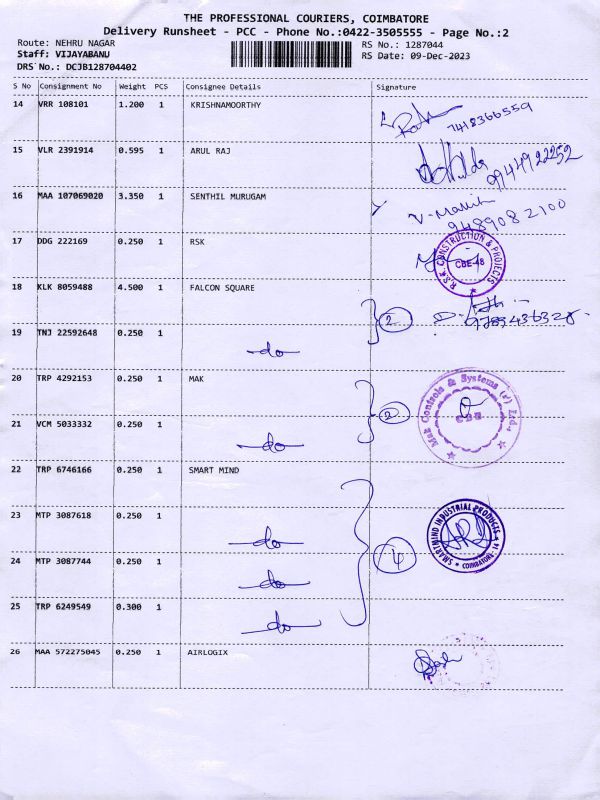 THE PROFESSIONAL COURIERS, COIMBATORE
Delivery Runsheet - PCC - Phone No.:0422-3505555 - Page No.:2
Route: NEHRU NAGAR
Staff: VIJAYABANU
DRS No.: DCJB128704402
RS No.: 1287044
RS Date: 09-Dec-2023
S No Consignment No Weight PCS Consignee Details Signature
14 VRR 108101 1.200 1 KRISHNAMOORTHY
7418366559
15 VLR 2391914 0.595 1 ARUL RAJ
9944922252
16 MAA 107069020 3.350 1 SENTHIL MURUGAM
9489082100
17 DDG 222169 0.250 1 RSK
R.S.K CONSTRUCTION & PROJECTS
CBE-48
18 KLK 8059488 4.500 1 FALCON SQUARE
2
9789436328
19 TNJ 22592648 0.250 1
do
20 TRP 4292153 0.250 1 MAK
Mak Controls & Systems (P) Ltd.,
2
21 VCM 5033332 0.250 1
do
22 TRP 6746166 0.250 1 SMART MIND
SMARTMIND INDUSTRIAL PRODUCTS
COIMBATORE
4
23 MTP 3087618 0.250 1
do
24 MTP 3087744 0.250 1
do
25 TRP 6249549 0.300 1
do
26 MAA 572275045 0.250 1 AIRLOGIX